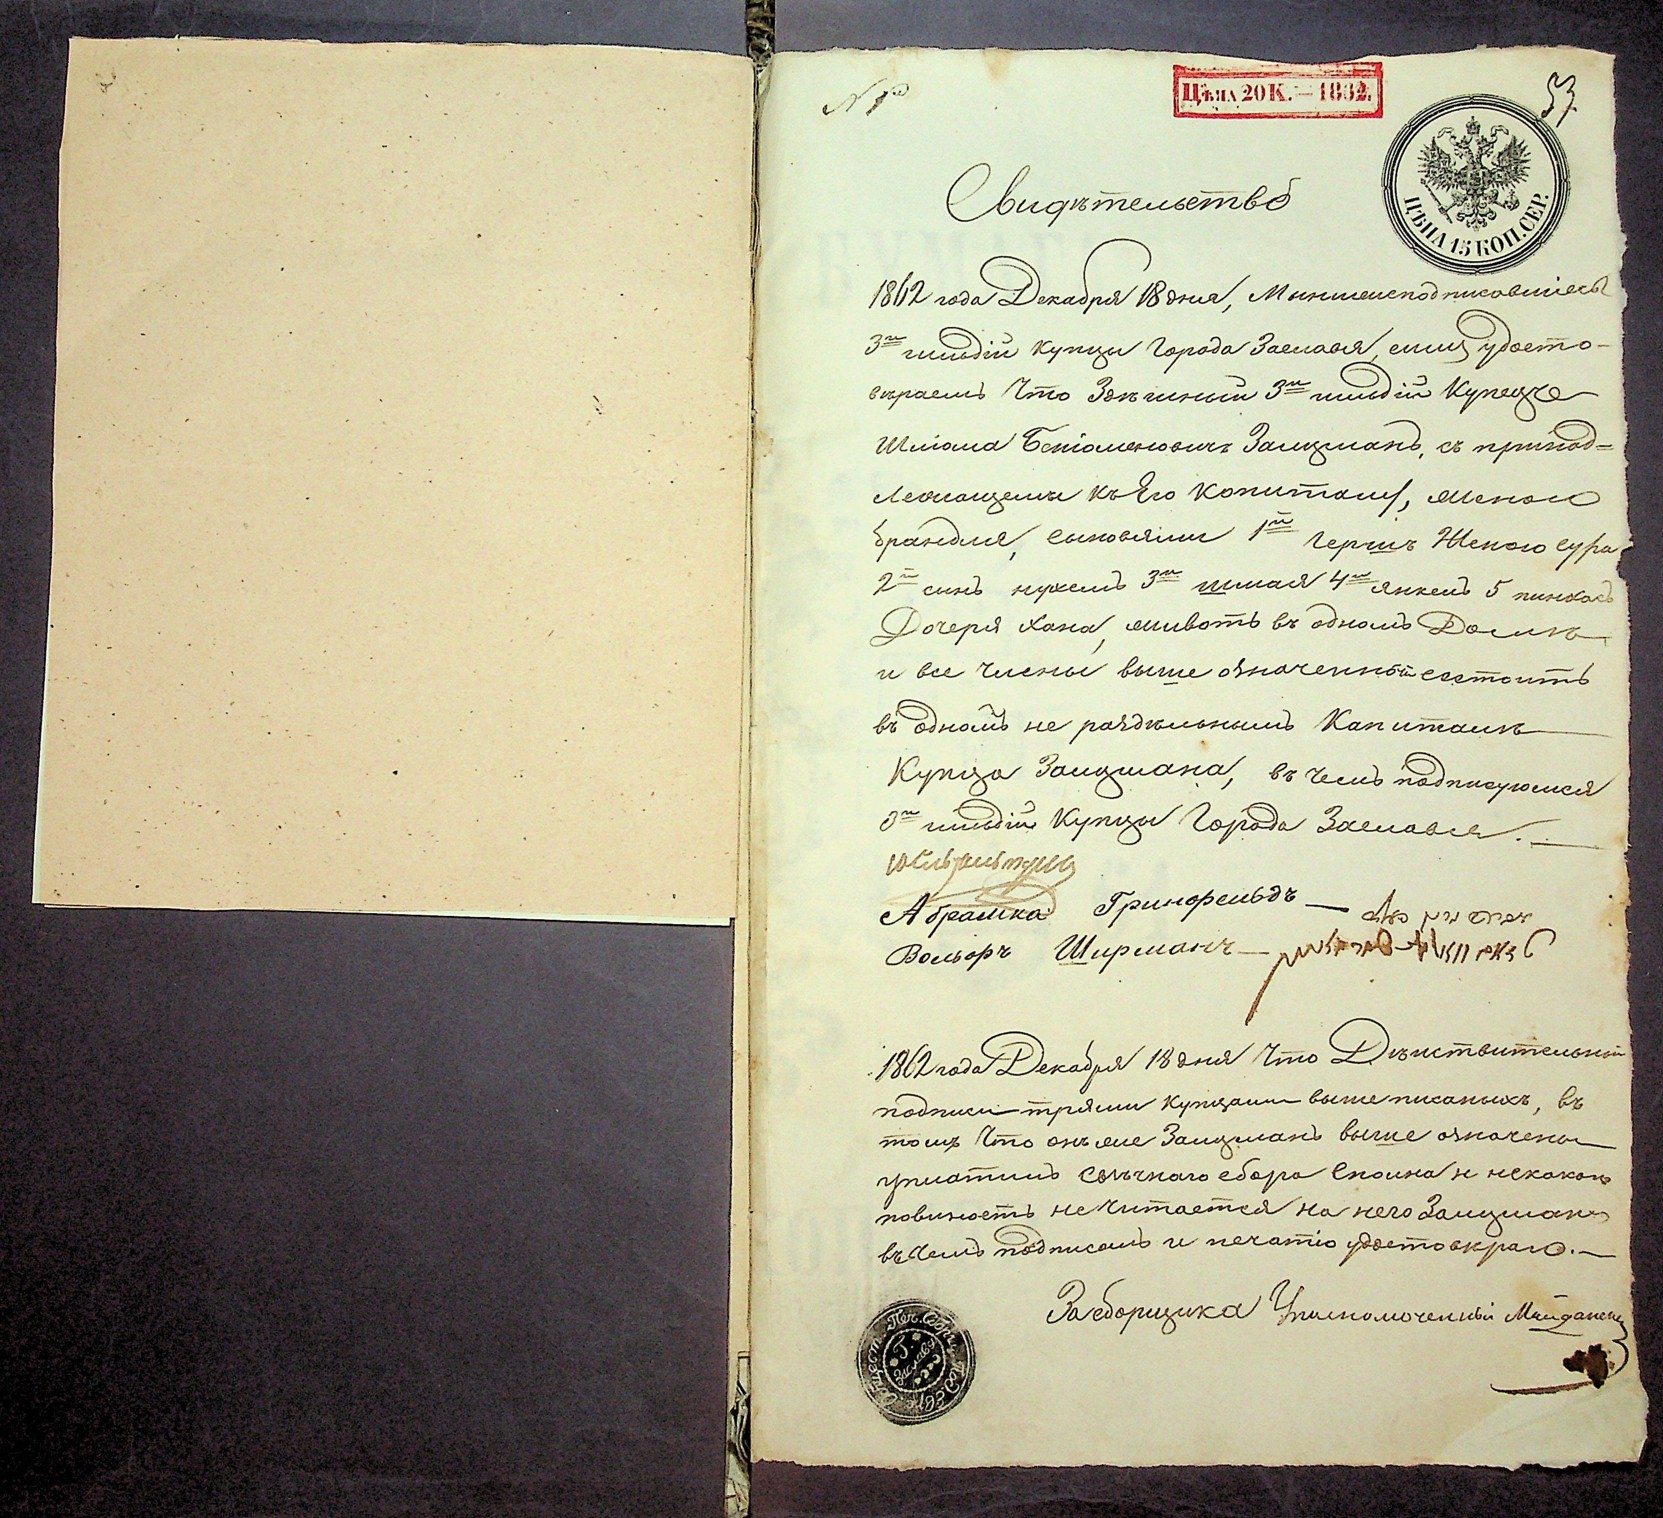 №
Цѣна 20 К. — 1862.
57.
ЦѢНА 15 КОП. СЕР.
Свидѣтельство
1862 года Декабря 18 дня, Мынижеподписавшіесь
3й гильдіи купцы Города Заславля, симъ удосто-
вѣраемъ Что Здѣшный 3й гильдіи Купецъ
Шліома Залцманъ, съ принад=
лежащемы къ Его Копиталу, женою
брандля, сыновями 1й Гершъ Женою сура
2й сынъ нухемъ 3й шмая 4й янкель 5 пинхасъ
Дочеря хана, животъ въ одномъ Домѣ
и все члены выше означенной состоитъ
въ одномъ не раздѣльнымъ Капиталѣ
Купца Залцмана, въ чемъ подписуюмся
3й гильдіи Купцы Города Заславля.
Абрамка Гринфельдъ —
Вольфъ Ширманъ —
1862 года Декабря 18 дня Что Дѣиствительной
подписи трями купцами выше писаныхъ, въ
томъ Что онъ же Залцманъ выше означены
уплатилъ свѣчнаго сбора сполна и некаковъ
повиность не читается на него Залцманъ
въ чемъ подписомъ и печатію удостовѣраю. —
За сборщика Уполномоченный Майданецъ
Г. Заславля